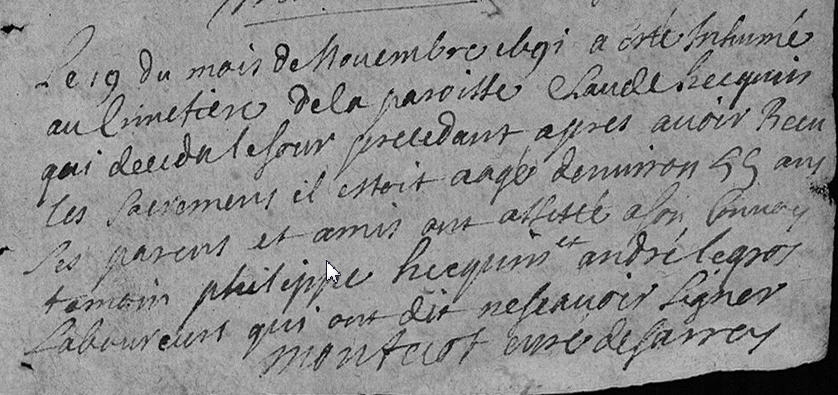 Le 19 du mois de Novembre 1691 a esté Inhumé
au Cimetiere de la paroisse Claude hecquin
qui deceda le Jour precedant apres avoir Receu
les Sacremens il estoit aagé denviron 55 ans
Ses parens et amis ont assisté a son Convoy
temoin philippe hecquin et andré legros
Laboureurs qui ont dit ne scavoir signer
curé de